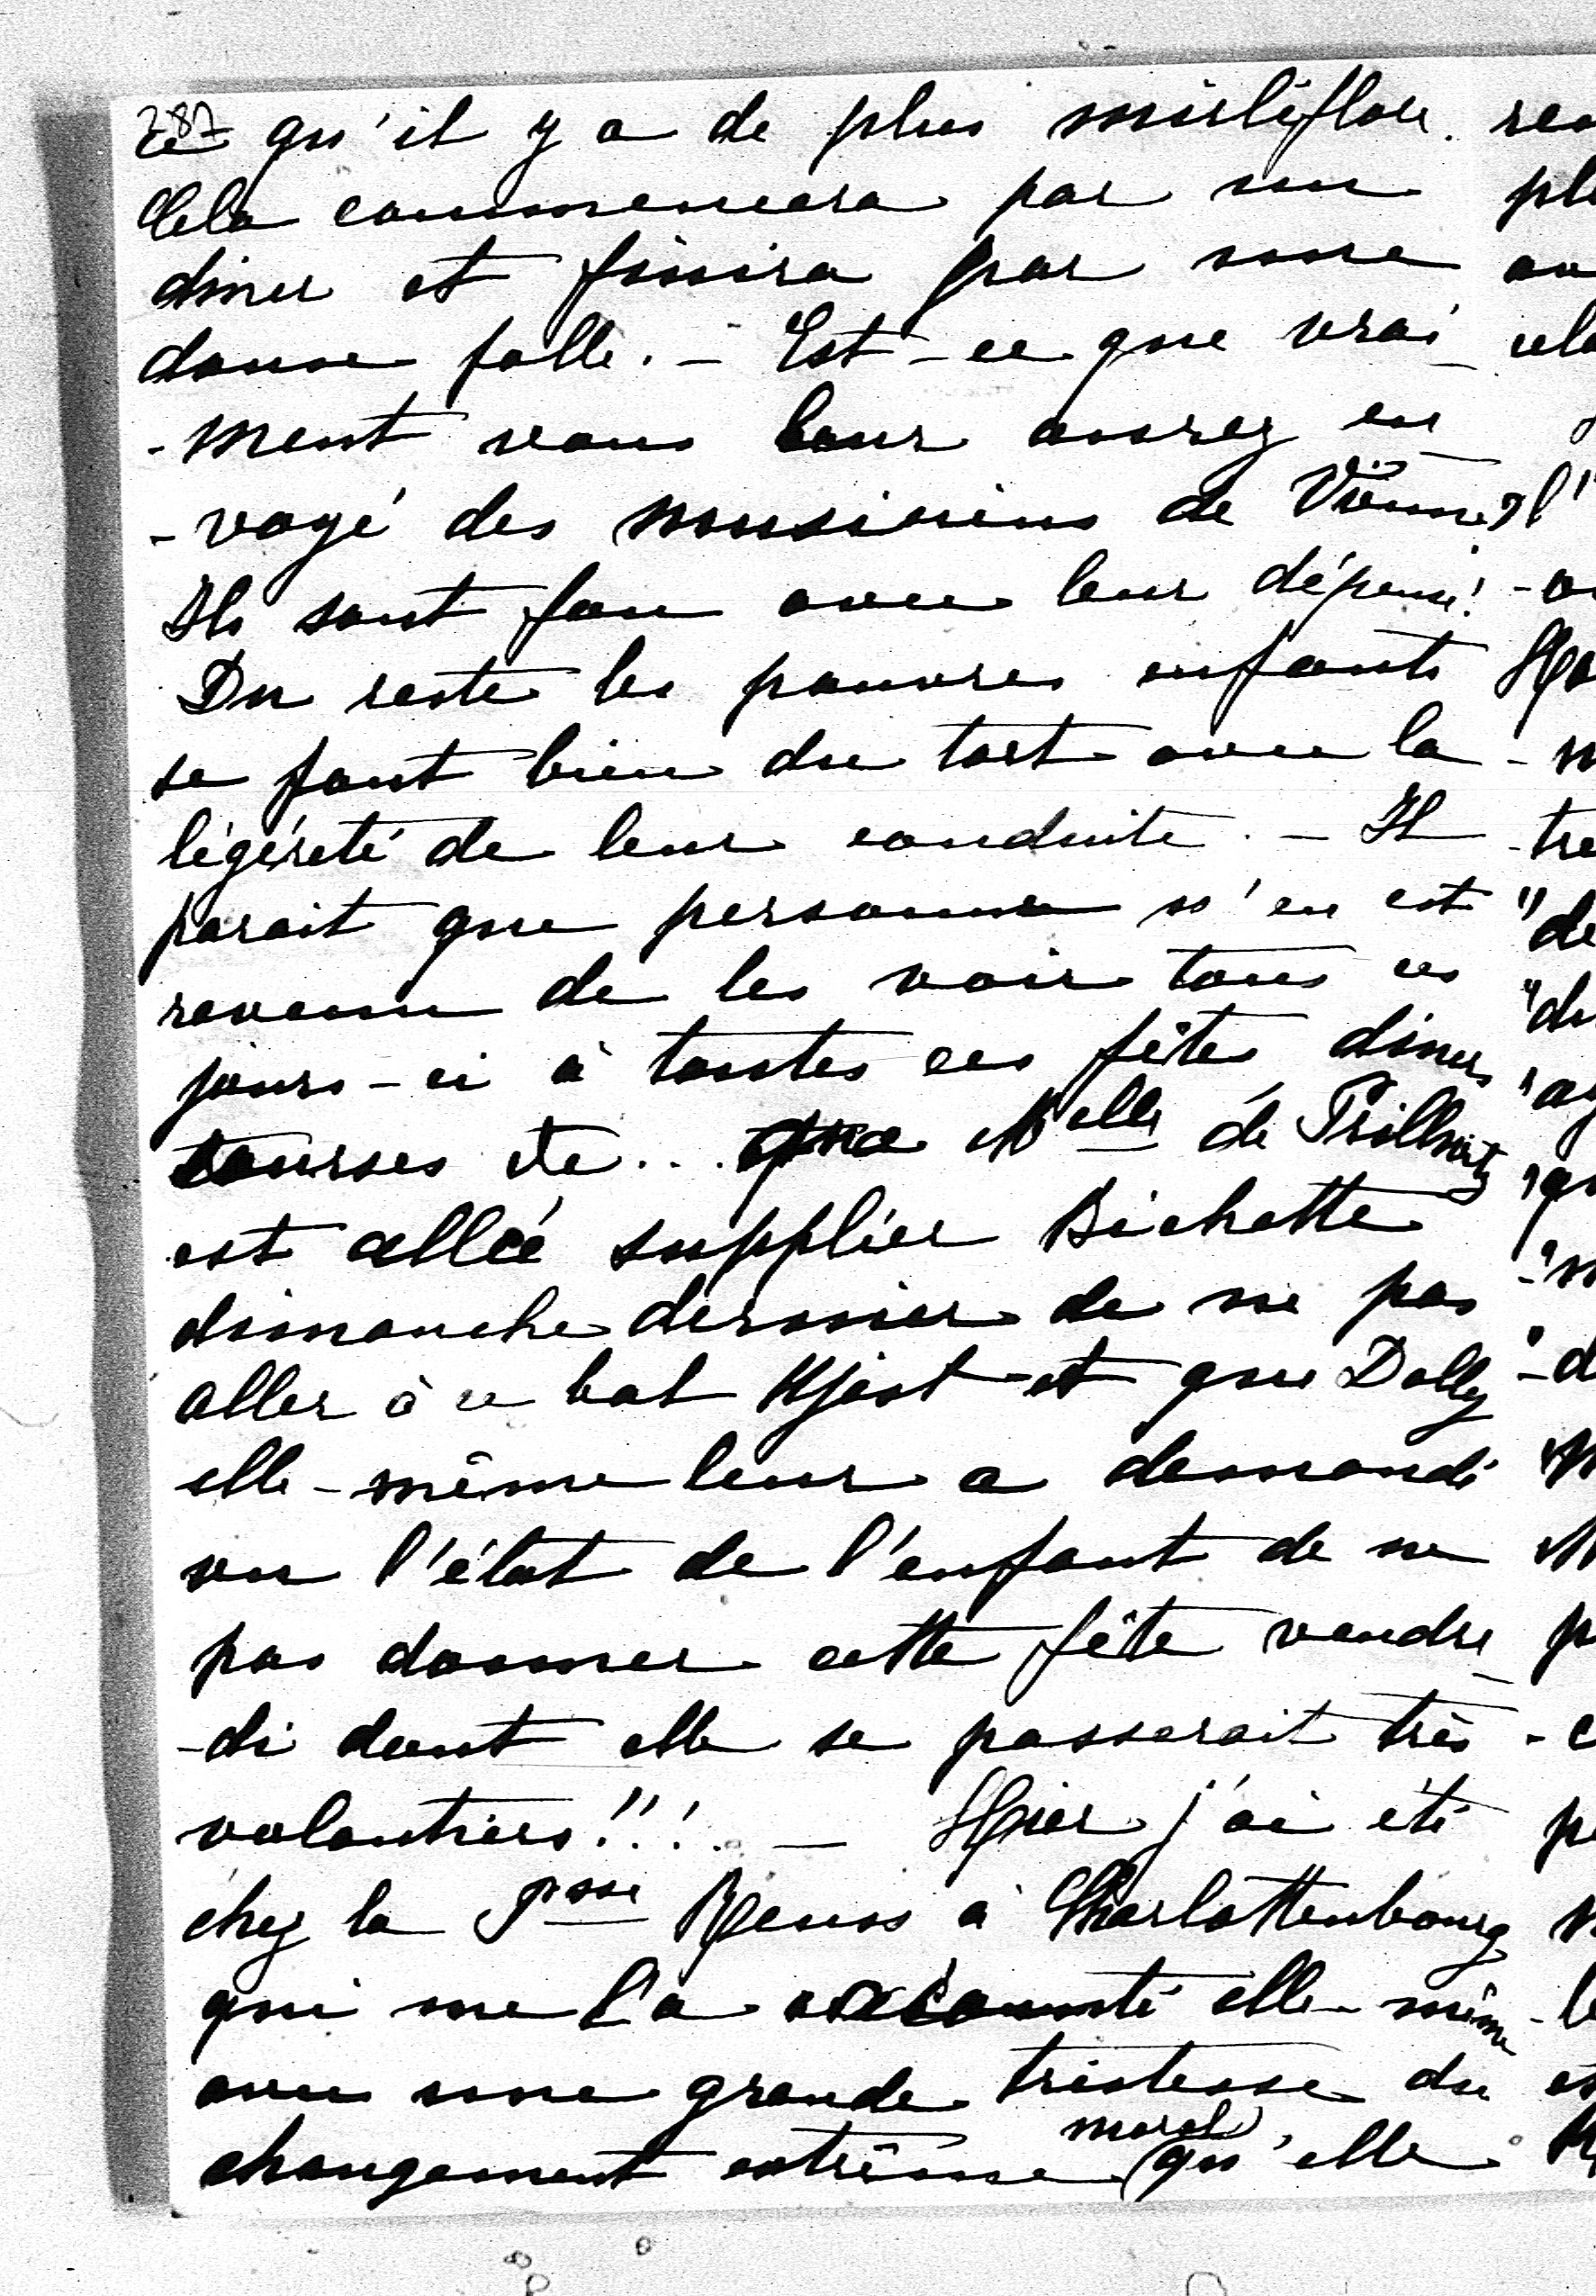 287
ce qu'il y a de plus mirliflore.
Cela commencera par un
diner et finira par une
danse folle. — Est-ce que vrai
-ment vous leur aurez en
-voyé des musiciens de Vienne?
Ils sont fou avec leur dépense!
Du reste les pauvres enfants
se font bien du tort avec la
légéreté de leur conduite. — Il
parait que personne n'en est
revenu de les voir tous ces
jours-ci à toutes ces fêtes, diners
courses etc... que Melle de
est allée supplier Bichette
dimanche dernier de ne pas
aller à ce bal et que Dolly
elle-même leur a demandé
vu l'état de l'enfant de ne
pas donner cette fête vendre
-di dont elle se passerait très
volontiers!!! — Hier j'ai été
chez la Psse Reuss à Charlottenbourg
qui me l'a raconté elle-même
avec une grande tristesse du
changement extrême moral qu'elle